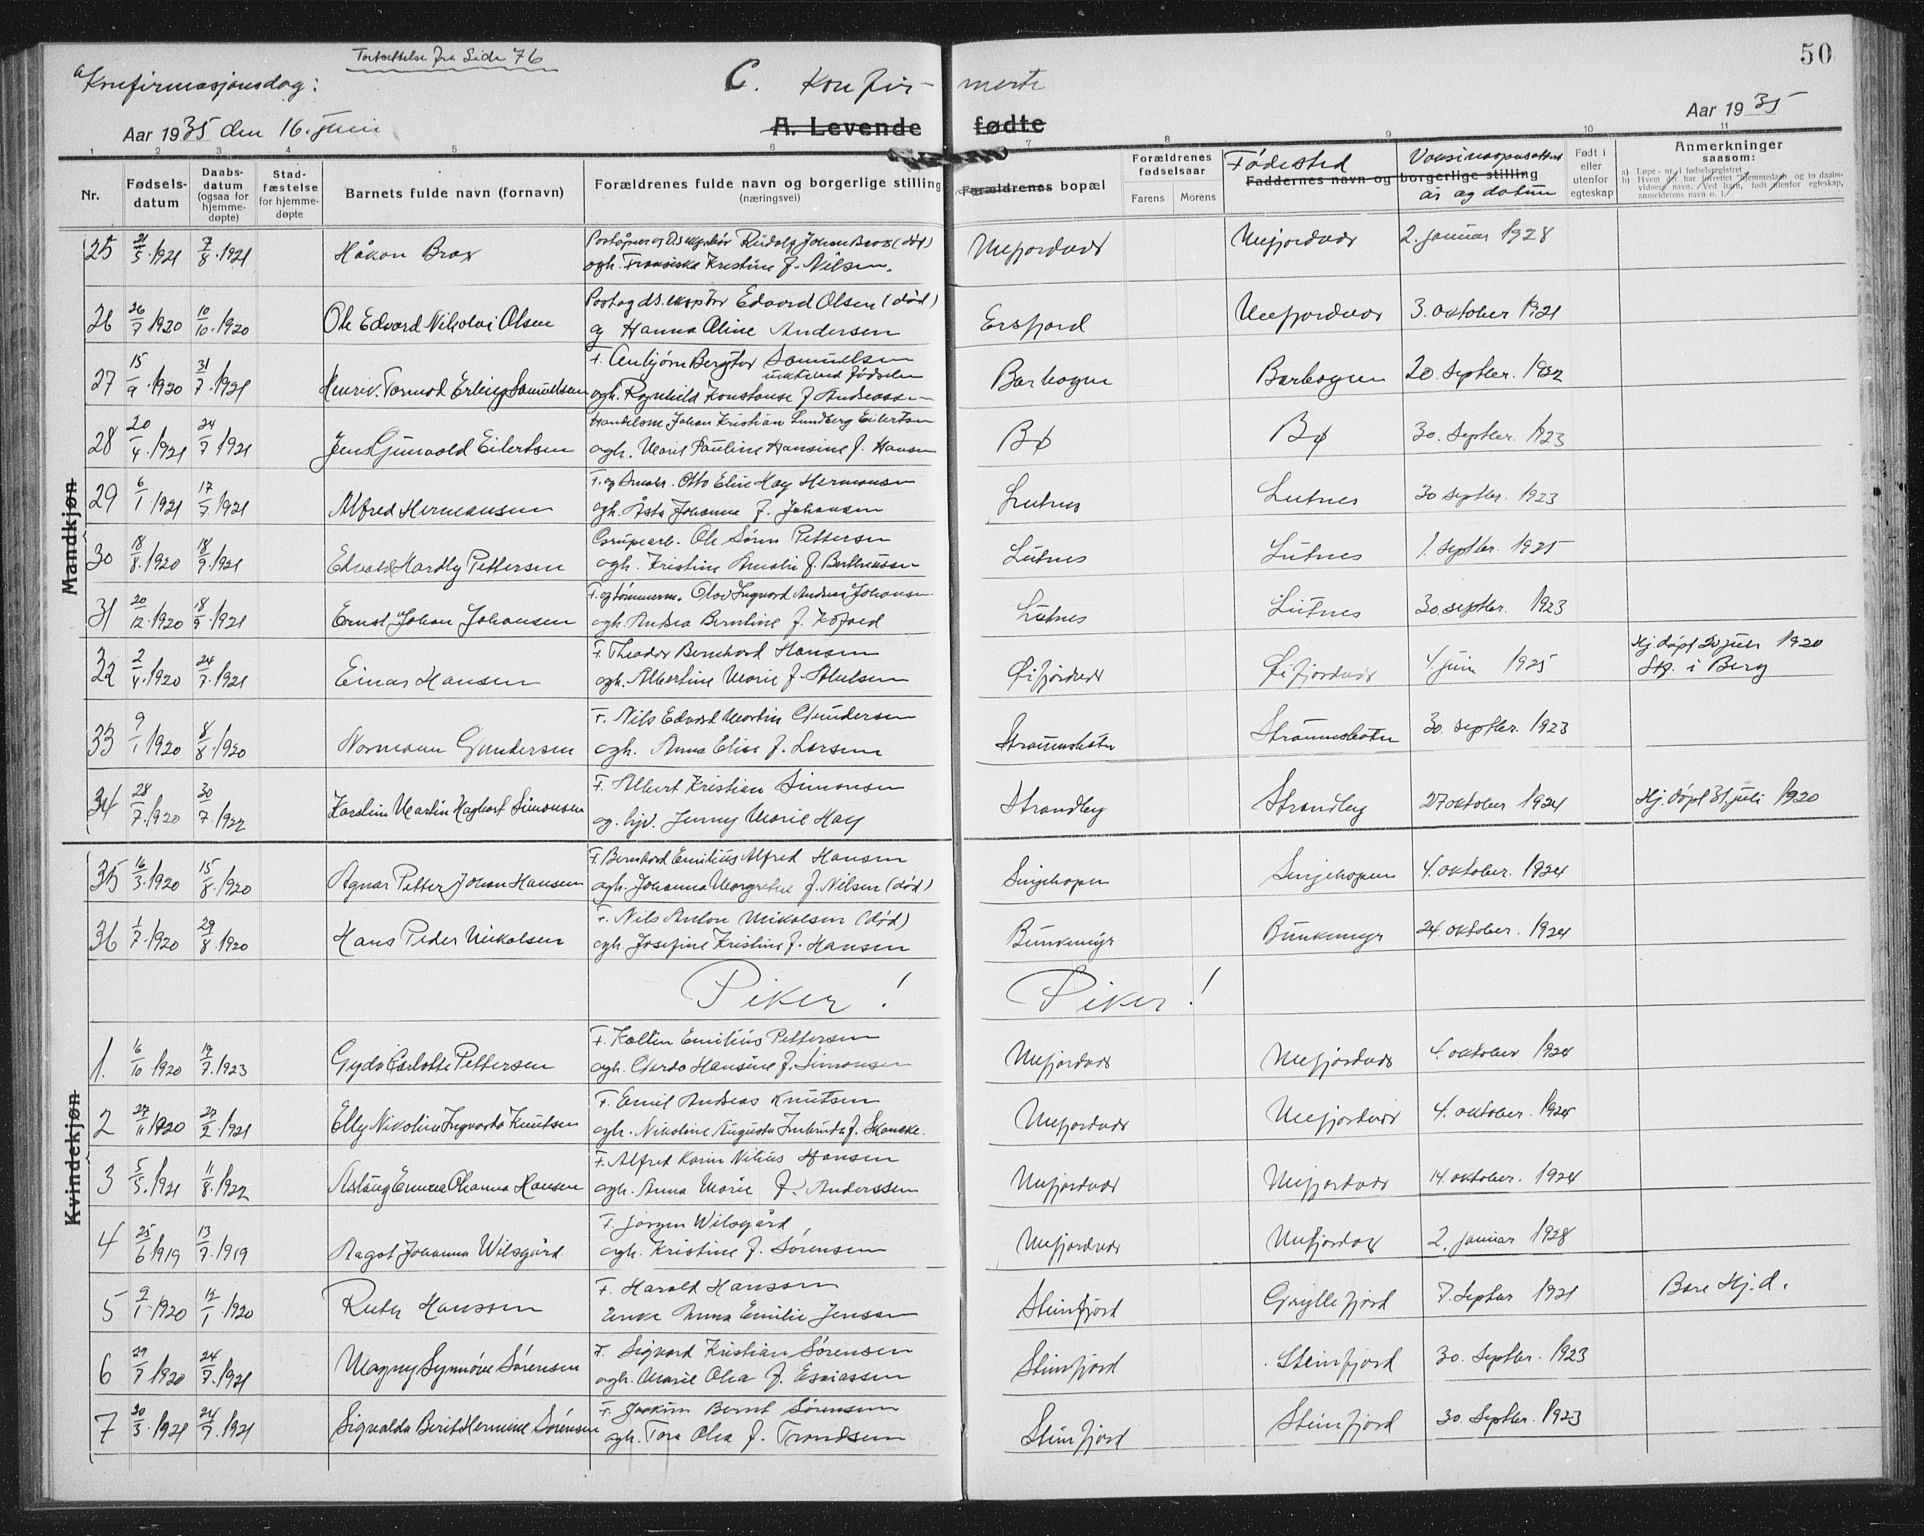 Fortsettelse fra Side 76
50
Konfirmasjonsdag:
C. Konfir- merte
Aar 1935 den 16. juni
A. Levende fødte
Aar 1935
1 2 3 4 5 6 7 8 9 10 11
Nr. Fødsels-datum Daabs-datum (ogsaa for hjemme-døpte) Stad-fæstelse for hjemme-døpte Barnets fulde navn (fornavn) Forældrenes fulde navn og borgerlige stilling (næringsvei) Forældrenes bopæl Forældrenes fødselsaar Farens Morens Fødested Faddernes navn og borgerlige stilling Vaksinasjonsattest år og datum Født i eller utenfor egteskap Anmerkninger saasom:
Mandkjøn
25 21/5 1921 7/8 1921 Håkon Brox Rudolf Johan Brox (død)
ogh. Fransiska Kristine f. Nilsen. Mefjordvær Mefjordvær 2. januar 1928
26 26/7 1920 10/10 1920 Ole Edvard Nikolai Olsen Edvard Olsen (død)
og Hanna Oline Andersen Ersfjord Mefjordvær 3. oktober 1921
27 15/9 1920 31/7 1921 Henrik Tormod Erling Samuelsen F. Anbjørn Bergtor Samuelsen
ogh. Ragnhild Konstanse f. Andreassen Barbogen Barbogen 20. septbr. 1922
28 20/4 1921 24/7 1921 Jens Gunvald Eilertsen Handelsm. Johan Kristian Lundberg Eilertsen
ogh. Marit Pauline Hansine f. Hansen Bø Bø 30. septbr. 1923
29 6/1 1921 17/7 1921 Alfred Hermansen F. og Småbr. Otto Elin Hay Hermansen
ogh. Åsta Johanna f. Johansen Lutnes Lutnes 30 septbr. 1923
30 18/8 1920 18/9 1921 Edvald Hardly Pettersen Grubearb. Ole Søren Pettersen
ogh. Kristine Amalie f. Bertheussen Lutnes Lutnes 1. septbr. 1925
31 20/12 1920 18/9 1921 Ernst Johan Johansen F. og tømmerm. Olav Ingvard Andreas Johansen
ogh. Andrea Berntine f. Kofoed Lutnes Lutnes 30 septbr. 1923
32 2/4 1920 24/7 1921 Einar Hansen F. Theodor Bernhard Hansen
ogh. Albertine Marie f. Øifjordvær Øifjordvær 4. juni 1925 Hj. døpt 20 juli 1920
Stf. i Berg
33 9/1 1920 8/8 1920 Normann Gundersen F. Nils Edvard Martin Gundersen
ogh. Anna Elise f. Larsen Straumsbotn Straumsbotn 30. septbr. 1923
34 28/7 1920 30/7 1922 Karolin Martin Hagbart Simonsen F. Albert Kristian Simonsen
og. hj. Jenny Marie Hay Strandby Strandby 27 oktober 1924 Hj. døpt 31. juli 1920
Kvindekjøn
35 16/3 1920 15/8 1920 Agnar Petter Johan Hansen F. Bernhard Emilius Alfred Hansen
ogh. Johanna Margrethe f. Nilsen (død) Sinjehopen Sinjehopen 4. oktober. 1924
36 1/7 1920 29/8 1920 Hans Peder Mikalsen F. Nils Anton Mikalsen (død)
ogh. Josefine Kristine f. Hansen Bunkemyr Bunkemyr 24. oktober. 1924
Piker! Piker!
1. 16/10 1920 19/7 1923 Gyda Karlotte Pettersen F. Koltin Emilius Pettersen
ogh. Gerda Hansine f. Simonsen Mefjordvær Mefjordvær 4. oktober 1924
2 27/11 1920 27/2 1921 Elly Nikoline Ingvarda Knutsen F. Emil Andreas Knutsen
ogh. Nikoline Augusta Imbrida f. Skancke. Mefjordvær Mefjordvær 4. oktober. 1924
3 5/5 1921 11/8 1922 Aslaug Emma Ohanna Hansen F. Alfred Karin Nilius Hansen
ogh. Anna Marie f. Anderssen Mefjordvær Mefjordvær 14. oktober. 1924
4 25/6 1919 13/7 1919 Ragot Johanna Wilsgård F. Jørgen Wilsgård
ogh. Kristine f. Sørensen Mefjordvær Mefjordvær 2. januar 1928
5 9/1 1920 12/1 1920 Ruth Hanssen F. Harald Hanssen
Enke Anna Emilie Jensen Steinfjord Gryllefjord 7. septbr 1921 Bare Hj.d.
6 29/7 1920 24/7 1921 Magny Synnøve Sørensen F. Sigvard Kristian Sørensen
ogh. Marie Olea f. Esaiassen Steinfjord Steinfjord 30. septbr. 1923
7 20/3 1921 24/7 1921 Sigvalda Berit Hermine Sørensen F. Joakim Bernt Sørensen
ogh. Tora Olea f. Trondsen Steinfjord Steinfjord 30 septbr. 1923